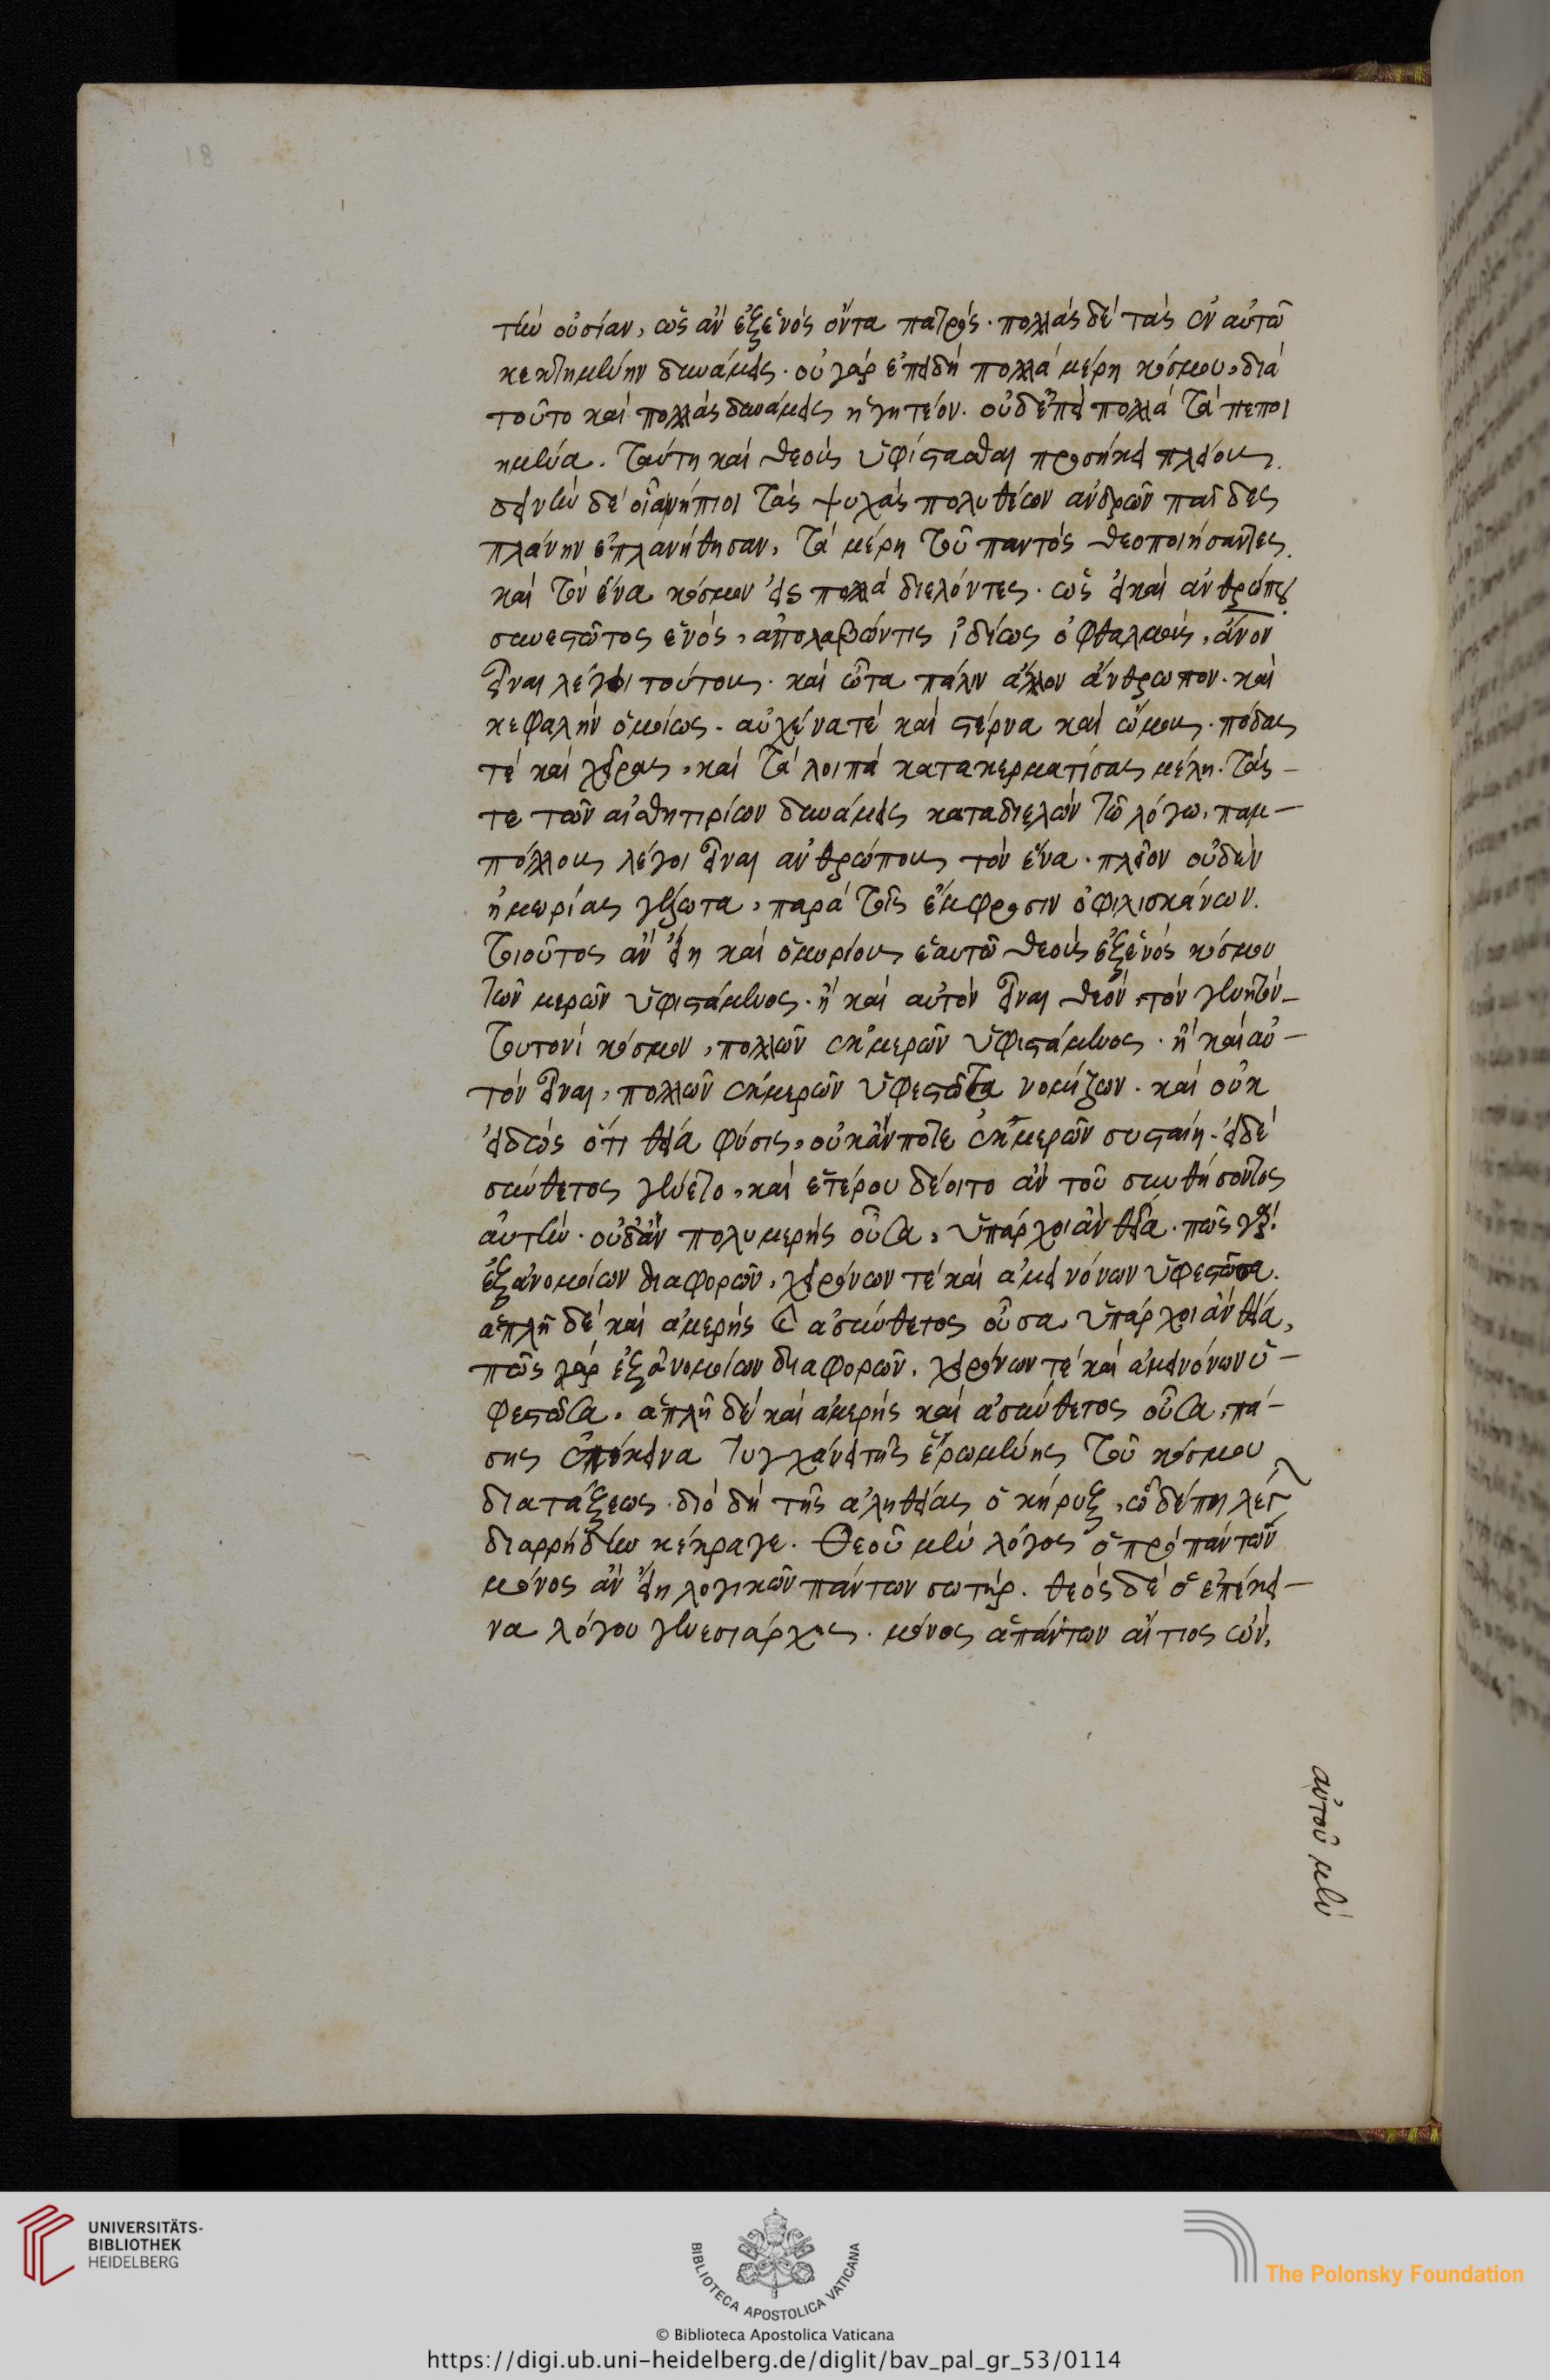 18
τὴν οὐσίαν, ὡς ἂν ἐξ ἑνὸς ὄντα πατρός. πολλὰς δὲ τὰς ἐν αὐτῶ
κεκτημένην δυνάμεις. οὐ γὰρ ἐπειδὴ πολλὰ μέρη κόσμου, διὰ
τοῦτο καὶ πολλὰς δυνάμεις ἡγητέον. οὐδ' ἐπεὶ πολλὰ τὰ πεποι
ημένα. ταύτη καὶ θεοὺς ὑφίστασθαι προσήκει πλείους.
δεινὴν δὲ οἷα νήπιοι τὰς ψυχὰς πολυθέων ἀνδρῶν παῖδες
πλάνην ἐπλανήθησαν, τὰ μέρη τοῦ παντὸς θεοποιήσαντες.
καὶ τὸν ἕνα κόσμον εἰς πολλὰ διελόντες. ὡς εἰ καὶ ἀνθρώπου
συνεστῶτος ἑνός, ἀπολαβόντις ἰδίως ὀφθαλμοὺς, ἄνον
εἶναι λέγοι τούτους. καὶ ὦτα πάλιν ἄλλον ἄνθρωπον. καὶ
κεφαλὴν ὁμοίως. αὐχένα τὲ καὶ στέρνα καὶ ὤμους. πόδας
τὲ καὶ χεῖρας, καὶ τὰ λοιπὰ κατακερματίσας μέλη. τάς-
τε τῶν αἰσθητιρίων δυνάμεις καταδιελὼν τῶ λόγω, παμ-
πόλλους λέγοι εἶναι ἀνθρώπους τὸν ἕνα. πλεῖον οὐδὲν
ἢ μωρίας γέλωτα, παρὰ τοῖς ἔμφροσιν ὀφλισκάνων.
τοιοῦτος ἂν εἴη καὶ ὁ μυρίους ἑαυτῶ θεοὺς ἐξ ἑνὸς κόσμου
τῶν μερῶν ὑφιστάμενος. ἢ καὶ αὐτὸν εἶναι θεὸν τὸν γενητὸν-
τουτονὶ κόσμον, πολλῶν ἐκ μερῶν ὑφιστάμενος. ἢ καὶ αὐ-
τὸν εἶναι, πολλῶν ἐκ μερῶν ὑφεστῶτα νομίζων. καὶ οὐκ
εἰδὼς ὅτι θεία φύσις, οὐκ ἄν ποτε ἐκ μερῶν συσταίη. εἰ δὲ
σύνθετος γένετο, καὶ ἑτέρου δέοιτο ἂν τοῦ συνθήσοντος
αὐτὴν. οὐδ' ἂν πολυμερὴς οὖσα, ὑπάρχοι ἂν θεία. πῶς γάρ
ἐξ ἀνομοίων διαφορῶν, χειρόνων τὲ καὶ ἀμεινόνων ὑφεστῶσα.
ἁπλῆ δὲ καὶ ἀμερὴς καὶ ἀσύνθετος οὖσα, ὑπάρχοι ἂν θεία,
πῶς γὰρ ἐξ ἀνομοίων διαφορῶν, χειρόνων τὲ καὶ ἀμεινόνων ὑ-
φεστῶσα. ἁπλῆ δὲ καὶ ἀμερὴς καὶ ἀσύνθετος οὖσα, πά-
σης ἐπέκεινα τυγχάνει τῆς ὁρωμένης τοῦ κόσμου
διατάξεως. διὸ δὴ τῆς ἀληθείας ὁ κήρυξ, ὧδέ πη λέγ
διαρρήδην κέκραγε. Θεοῦ μὲν λόγος ὁ πρὸ πάντων
μόνος ἂν εἴη λογικῶν πάντων σωτήρ. θεὸς δὲ ὁ ἐπέκει-
να λόγου γενεσιάρχης. μόνος ἁπάντων αἴτιος ὤν,
αὐτοῦ μὲν
UNIVERSITÄTS-
BIBLIOTHEK
HEIDELBERG
BIBLIOTECA APOSTOLICA VATICANA
The Polonsky Foundation
© Biblioteca Apostolica Vaticana
https://digi.ub.uni-heidelberg.de/diglit/bav_pal_gr_53/0114